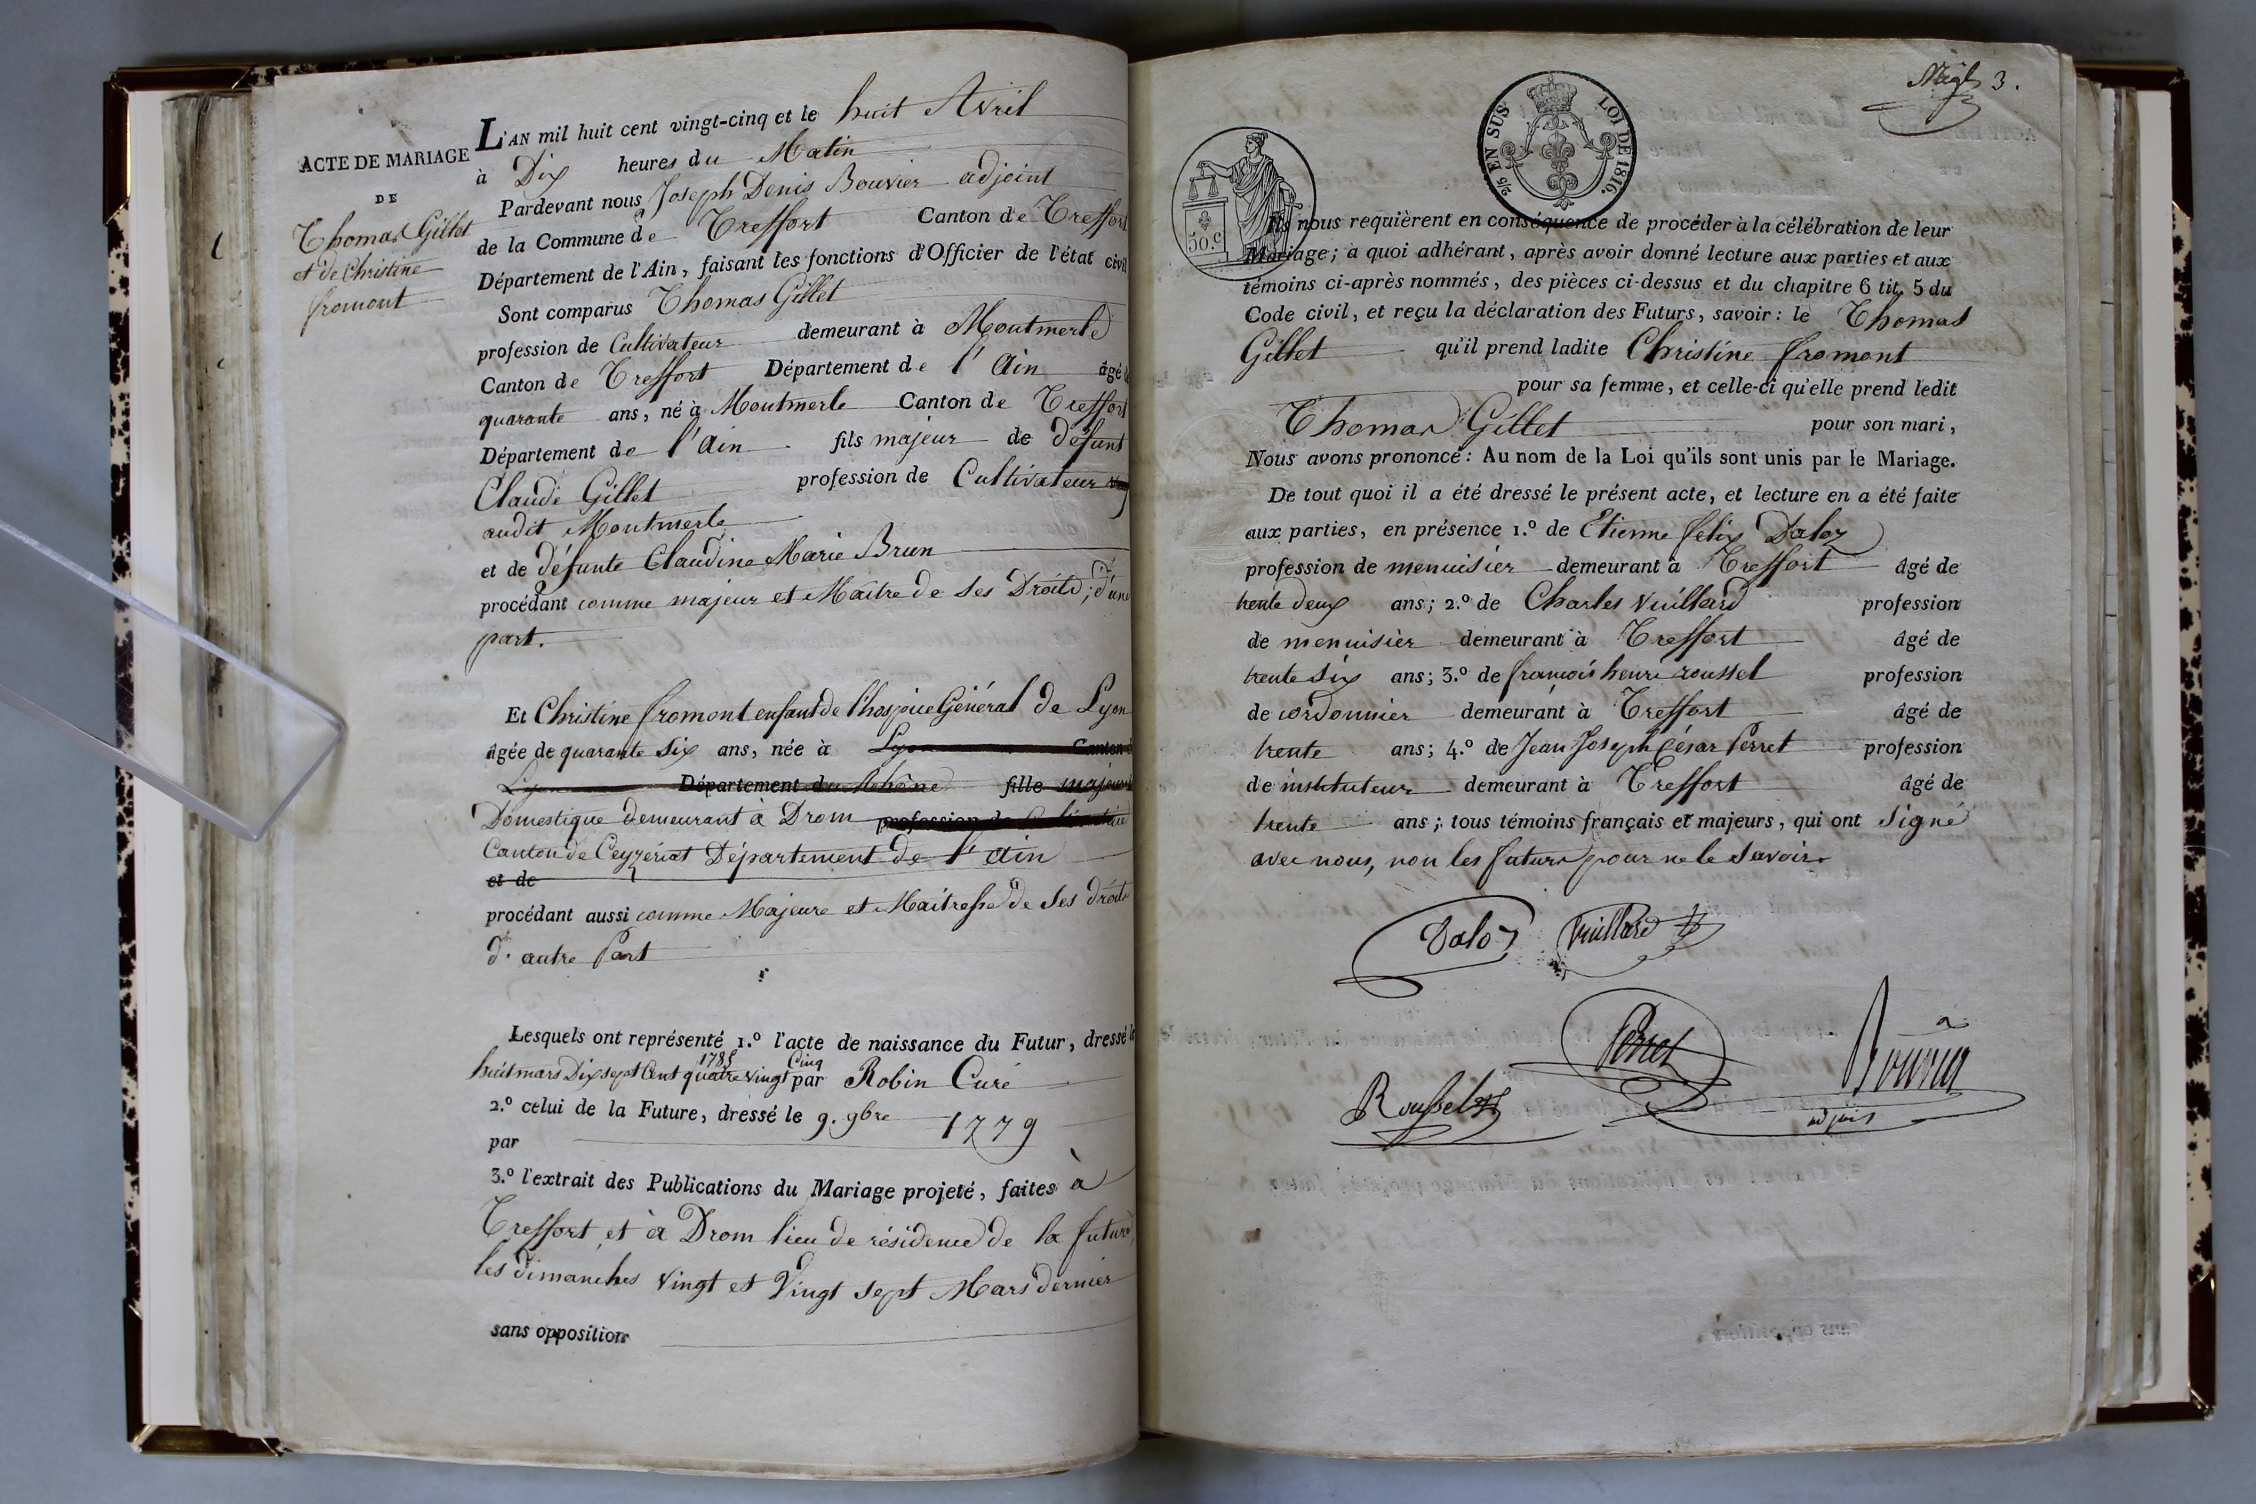 ACTE DE MARIAGE
DE
Thomas Gillet
et de Christine
fromont
L'AN mil huit cent vingt-cinq et le huit Avril
à Dix heures du Matin
Pardevant nous Joseph Denis Bouvier adjoint
de la Commune de Treffort Canton de Treffort
Département de l'Ain, faisant les fonctions d'Officier de l'état civil
Sont comparus Thomas Gillet
profession de Cultivateur demeurant à Montmerle
Canton de Treffort Département de l'Ain âgé de
quarante ans, né à Montmerle Canton de Treffort
Département de l'Ain fils majeur de défunt
Claude Gillet profession de Cultivateur
audit Montmerle
et de défunte Claudine Marie Brun
procédant comme majeur et Maitre de ses Droits, d'une
part.
Et Christine fromont enfant de l'hospice Général de Lyon
âgée de quarante six ans, née à Lyon Canton de
Lyon Département du Rhône fille majeure
Domestique demeurant à Drom profession de
Canton de Ceyzériat Département de l'ain
et de
procédant aussi comme Majeure et Maitresse de ses droits
d'autre Part
Lesquels ont représenté 1.º l'acte de naissance du Futur, dressé le
1785 Cinq
huit mars Dix sept Cent quatre vingt par Robin Curé
2.º celui de la Future, dressé le 9. 9bre 1779
par
3.º l'extrait des Publications du Mariage projeté, faites à
Treffort et à Drom lieu de résidence de la future,
les dimanches vingt et Vingt sept Mars dernier
sans opposition
3.
2/5 EN SUS LOI DE 1816.
50.C
Ils nous requièrent en conséquence de procéder à la célébration de leur
Mariage; a quoi adhérant, après avoir donné lecture aux parties et aux
témoins ci-après nommés, des pièces ci-dessus et du chapitre 6 tit. 5 du
Code civil, et reçu la déclaration des Futurs, savoir: le Thomas
Gillet qu'il prend ladite Christine fromont
pour sa femme, et celle-ci qu'elle prend ledit
Thomas Gillet pour son mari,
Nous avons prononcé: Au nom de la Loi qu'ils sont unis par le Mariage.
De tout quoi il a été dressé le présent acte, et lecture en a été faite
aux parties, en présence 1.º de Etienne felix Daloz
profession de menuisier demeurant à Treffort âgé de
trente deux ans; 2.º de Charles Vuillard profession
de menuisier demeurant à Treffort âgé de
trente six ans; 3.º de françois henri roussel profession
de cordonnier demeurant à Treffort âgé de
trente ans; 4.º de Jean Joseph César Perret profession
de instituteur demeurant à Treffort âgé de
trente ans; tous témoins français et majeurs, qui ont signé
avec nous, non les futurs pour ne le savoir.
Daloz Vuillard
Perret Bouvier
Roussel adjoint